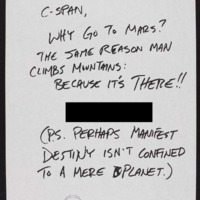 C-SPAN,
WHY GO TO MARS?
THE SAME REASON MAN
CLIMBS MOUNTAINS:
BECAUSE IT'S THERE!!
(P.S. PERHAPS MANIFEST
DESTINY ISN'T CONFINED
TO A MERE PLANET.)